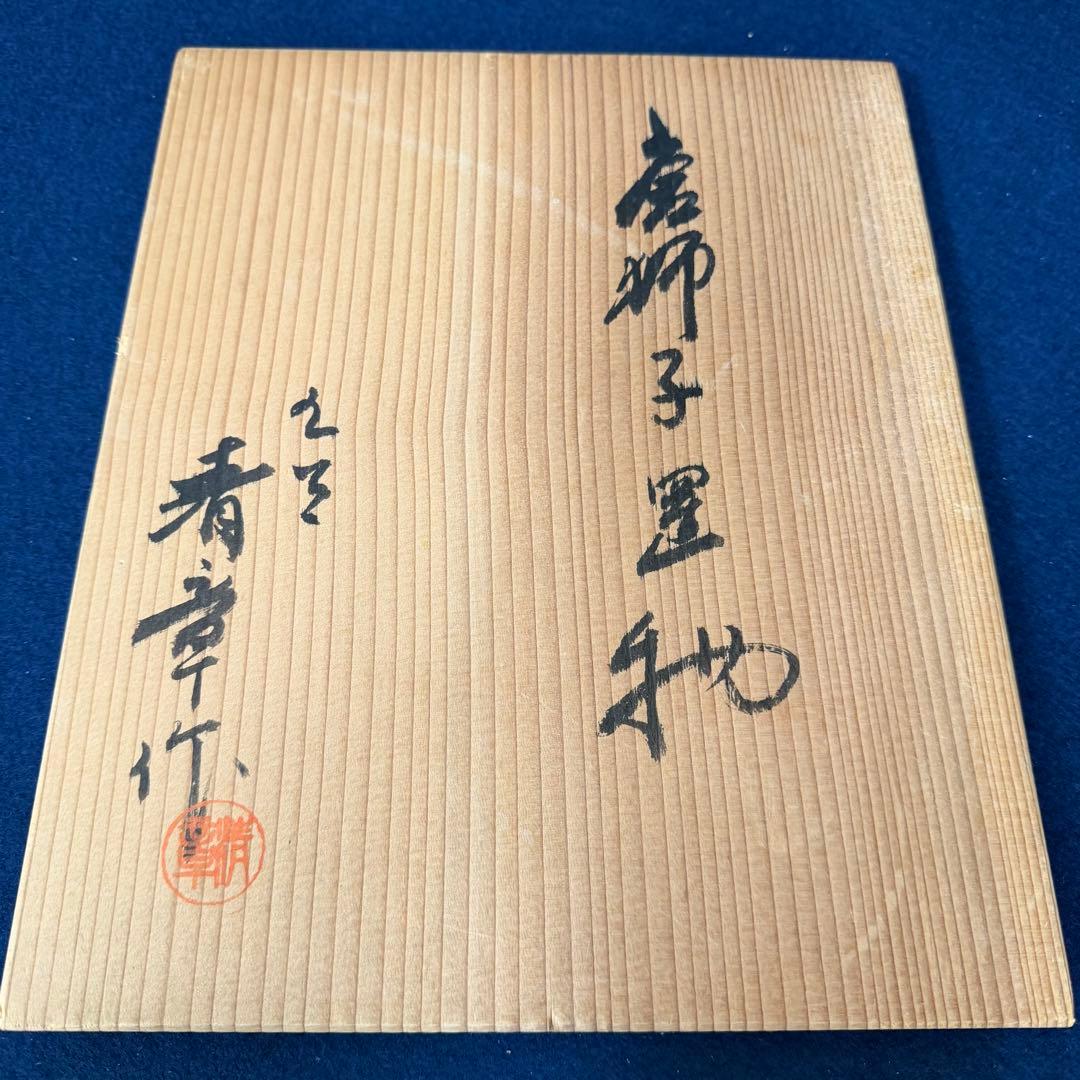 唐獅子置物
九谷
青章作
清章